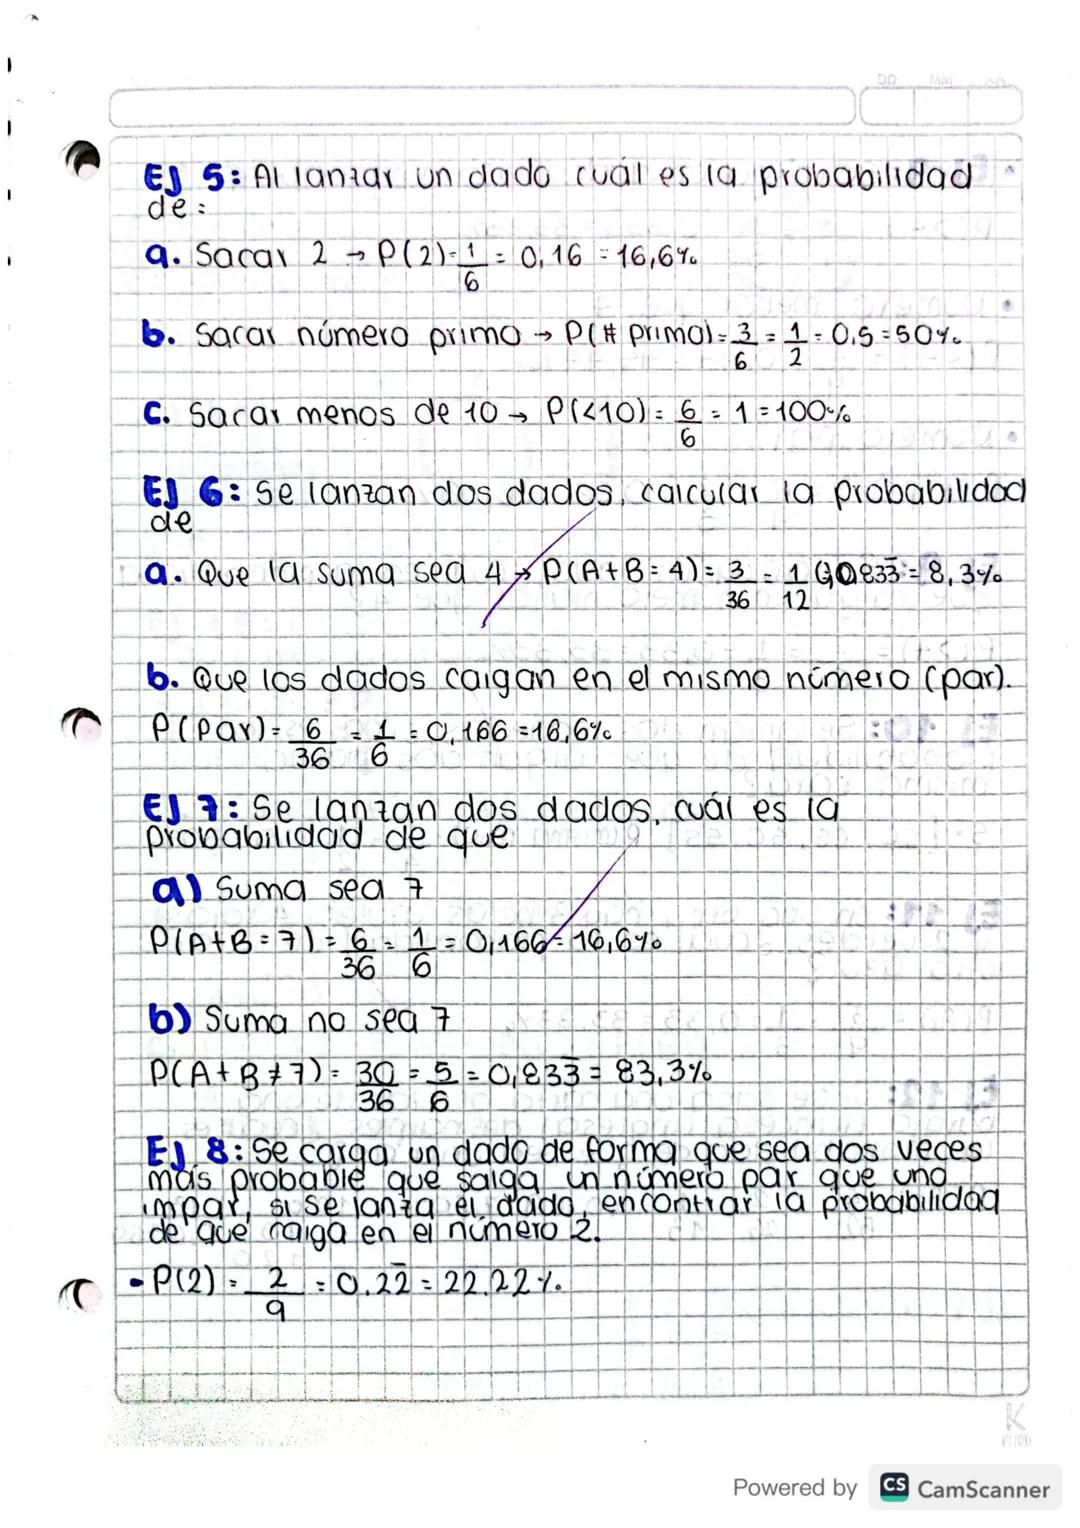 DD MM AA
EJ 5: Al lanzar un dado cuál es la probabilidad
de:
a. Sacar 2 → P(2)=1/6 = 0,16 = 16,6%
b. Sacar número primo → P(# primo)=3/6 = 1/2 = 0,5 = 50%
c. Sacar menos de 10 → P(<10) = 6/6 = 1 = 100%
EJ 6: Se lanzan dos dados, calcular la probabilidad
de
a. Que la suma sea 4 → P(A+B=4) = 3/36 = 1/12 0833̅ = 8,3%
b. Que los dados caigan en el mismo número (par).
P(Par) = 6/36 = 1/6 = 0,166 = 16,6%
EJ 7: Se lanzan dos dados, cuál es la
probabilidad de que
a) Suma sea 7
P(A+B=7) = 6/36 = 1/6 = 0,166 = 16,6%
b) Suma no sea 7
P(A+B≠7) = 30/36 = 5/6 = 0,833̅ = 83,3%
EJ 8: Se carga un dado de forma que sea dos veces
más probable que salga un número par que uno
impar, si se lanza el dado, encontrar la probabilidad
de que caiga en el número 2.
- P(2) = 2/9 = 0.22̅ = 22.22%
K
Powered by CS CamScanner